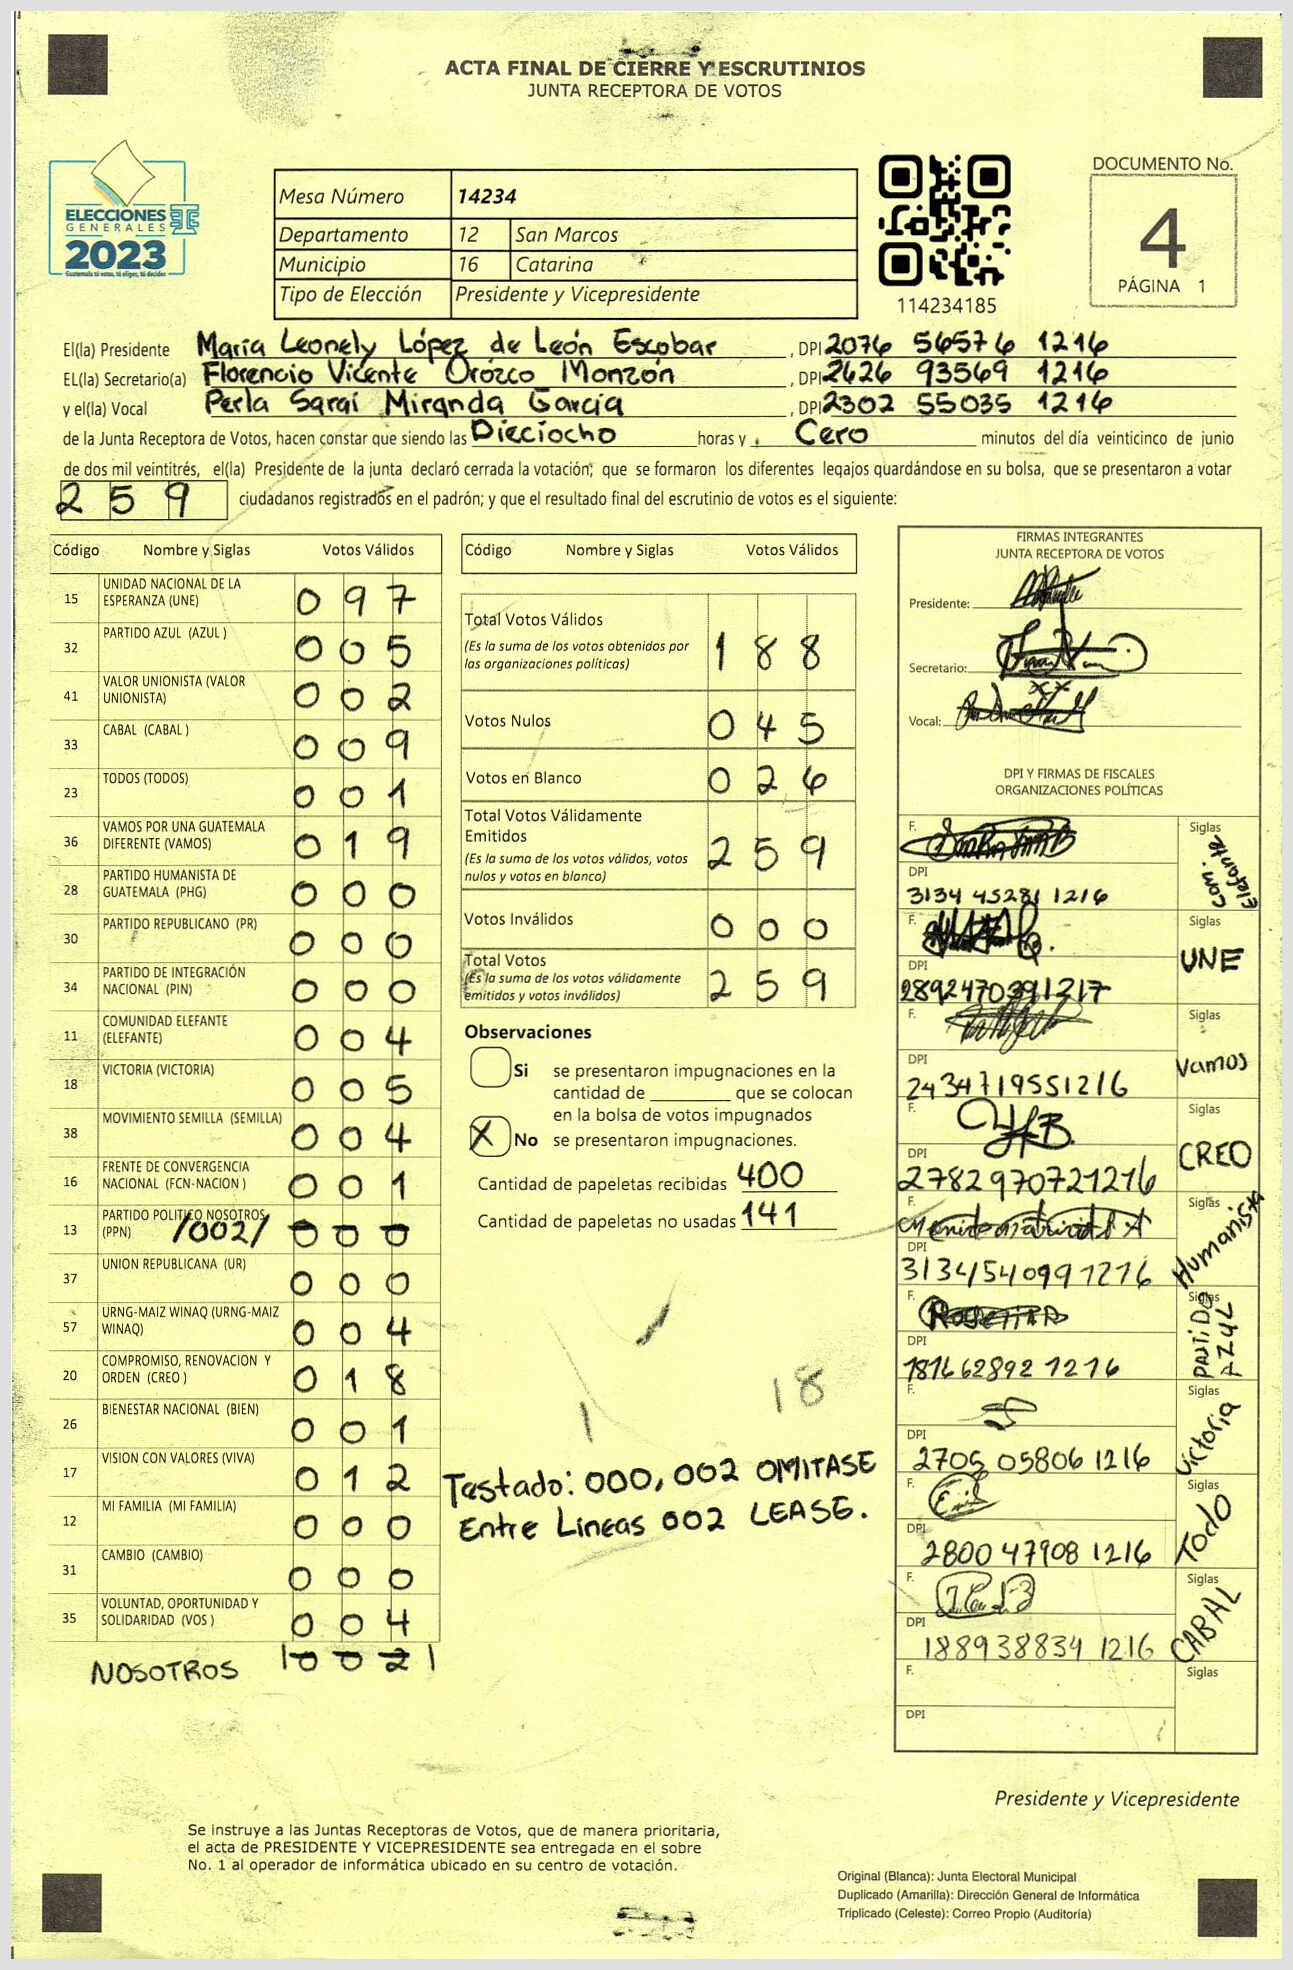 ACTA FINAL DE CIERRE Y ESCRUTINIOS
JUNTA RECEPTORA DE VOTOS
ELECCIONES
GENERALES
2023
Guatemala tú votas, tú eliges, tú decides
Mesa Número 14234
Departamento 12 San Marcos
Municipio 16 Catarina
Tipo de Elección Presidente y Vicepresidente
114234185
DOCUMENTO No.
4
PÁGINA 1
El(la) Presidente María Leonely López de León Escobar, DPI 2076 56576 1216
EL(la) Secretario(a) Florencio Vicente Orózco Monzón, DPI 2626 93569 1216
y el(la) Vocal Perla Saraí Miranda García, DPI 2302 55035 1216
de la Junta Receptora de Votos, hacen constar que siendo las Dieciocho horas y Cero minutos del día veinticinco de junio
de dos mil veintitrés, el(la) Presidente de la junta declaró cerrada la votación; que se formaron los diferentes legajos quardándose en su bolsa, que se presentaron a votar
259 ciudadanos registrados en el padrón; y que el resultado final del escrutinio de votos es el siguiente:
Código Nombre y Siglas Votos Válidos
15 UNIDAD NACIONAL DE LA ESPERANZA (UNE) 097
32 PARTIDO AZUL (AZUL ) 005
41 VALOR UNIONISTA (VALOR UNIONISTA) 002
33 CABAL (CABAL ) 009
23 TODOS (TODOS) 001
36 VAMOS POR UNA GUATEMALA DIFERENTE (VAMOS) 019
28 PARTIDO HUMANISTA DE GUATEMALA (PHG) 000
30 PARTIDO REPUBLICANO (PR) 000
34 PARTIDO DE INTEGRACIÓN NACIONAL (PIN) 000
11 COMUNIDAD ELEFANTE (ELEFANTE) 004
18 VICTORIA (VICTORIA) 005
38 MOVIMIENTO SEMILLA (SEMILLA) 004
16 FRENTE DE CONVERGENCIA NACIONAL (FCN-NACION ) 001
13 PARTIDO POLITICO NOSOTROS (PPN) /002/ 000
37 UNION REPUBLICANA (UR) 000
57 URNG-MAIZ WINAQ (URNG-MAIZ WINAQ) 004
20 COMPROMISO, RENOVACION Y ORDEN (CREO ) 018
26 BIENESTAR NACIONAL (BIEN) 001
17 VISION CON VALORES (VIVA) 012
12 MI FAMILIA (MI FAMILIA) 000
31 CAMBIO (CAMBIO) 000
35 VOLUNTAD, OPORTUNIDAD Y SOLIDARIDAD (VOS ) 004
NOSOTROS |002|
Código Nombre y Siglas Votos Válidos
Total Votos Válidos 188
(Es la suma de los votos obtenidos por
las organizaciones políticas)
Votos Nulos 045
Votos en Blanco 026
Total Votos Válidamente
Emitidos 259
(Es la suma de los votos válidos, votos
nulos y votos en blanco)
Votos Inválidos 000
Total Votos 259
(Es la suma de los votos válidamente
emitidos y votos inválidos)
Observaciones
Si se presentaron impugnaciones en la
cantidad de ________ que se colocan
en la bolsa de votos impugnados
X No se presentaron impugnaciones.
Cantidad de papeletas recibidas 400
Cantidad de papeletas no usadas 141
18
Testado: 000, 002 OMITASE
Entre Lineas 002 LEASE.
FIRMAS INTEGRANTES
JUNTA RECEPTORA DE VOTOS
Presidente:
Secretario:
Vocal:
DPI Y FIRMAS DE FISCALES
ORGANIZACIONES POLÍTICAS
F. Siglas Com. Elefante
DPI 3134 45281 1216
F. Siglas UNE
DPI 2892470391217
F. Siglas Vamos
DPI 2434719551216
F. Siglas CREO
DPI 2782970721216
F. Siglas Humanista
DPI 3134540991216
F. Siglas PARTIDO AZUL
DPI 181662892 1216
F. Siglas Victoria
DPI 2705 05806 1216
F. Siglas Todo
DPI 2800 47908 1216
F. Siglas CABAL
DPI 188938834 1216
F. Siglas
DPI
Presidente y Vicepresidente
Se instruye a las Juntas Receptoras de Votos, que de manera prioritaria,
el acta de PRESIDENTE Y VICEPRESIDENTE sea entregada en el sobre
No. 1 al operador de informática ubicado en su centro de votación.
Original (Blanca): Junta Electoral Municipal
Duplicado (Amarilla): Dirección General de Informática
Triplicado (Celeste): Correo Propio (Auditoría)